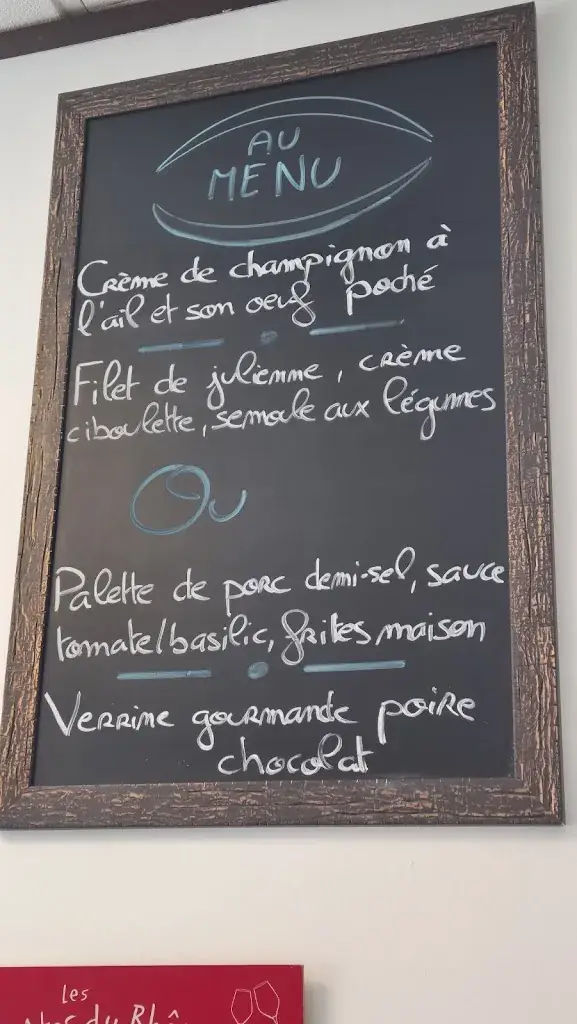 AU
MENU
Crème de champignon à
l'ail et son oeuf poché
Filet de julienne, crème
ciboulette, semoule aux légumes
Ou
Palette de porc demi-sel, sauce
tomate/basilic, frites maison
Verrine gourmande poire
chocolat
les
du Rhô